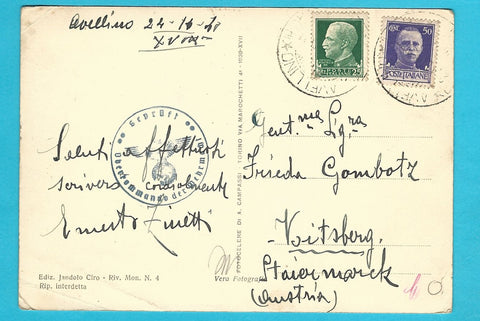 Avellino 24-10-40
XVIII
Saluti affettuosi
scriverò
Ernesto Zinetti
Ediz. Jandolo Ciro - Riv. Mon. N. 4
Rip. interdetta
Vera Fotografia
FOTOCELERE DI A. CAMPASSI TORINO VIA MAROCHETTI 41 - 1939-XVII
Geprüft
Oberkommando der Wehrmacht
50
POSTE ITALIANE
AVELLINO
Gent.ma Sig.ra
Frieda Gombotz
Voitsberg.
Steiermarck
(Austria)